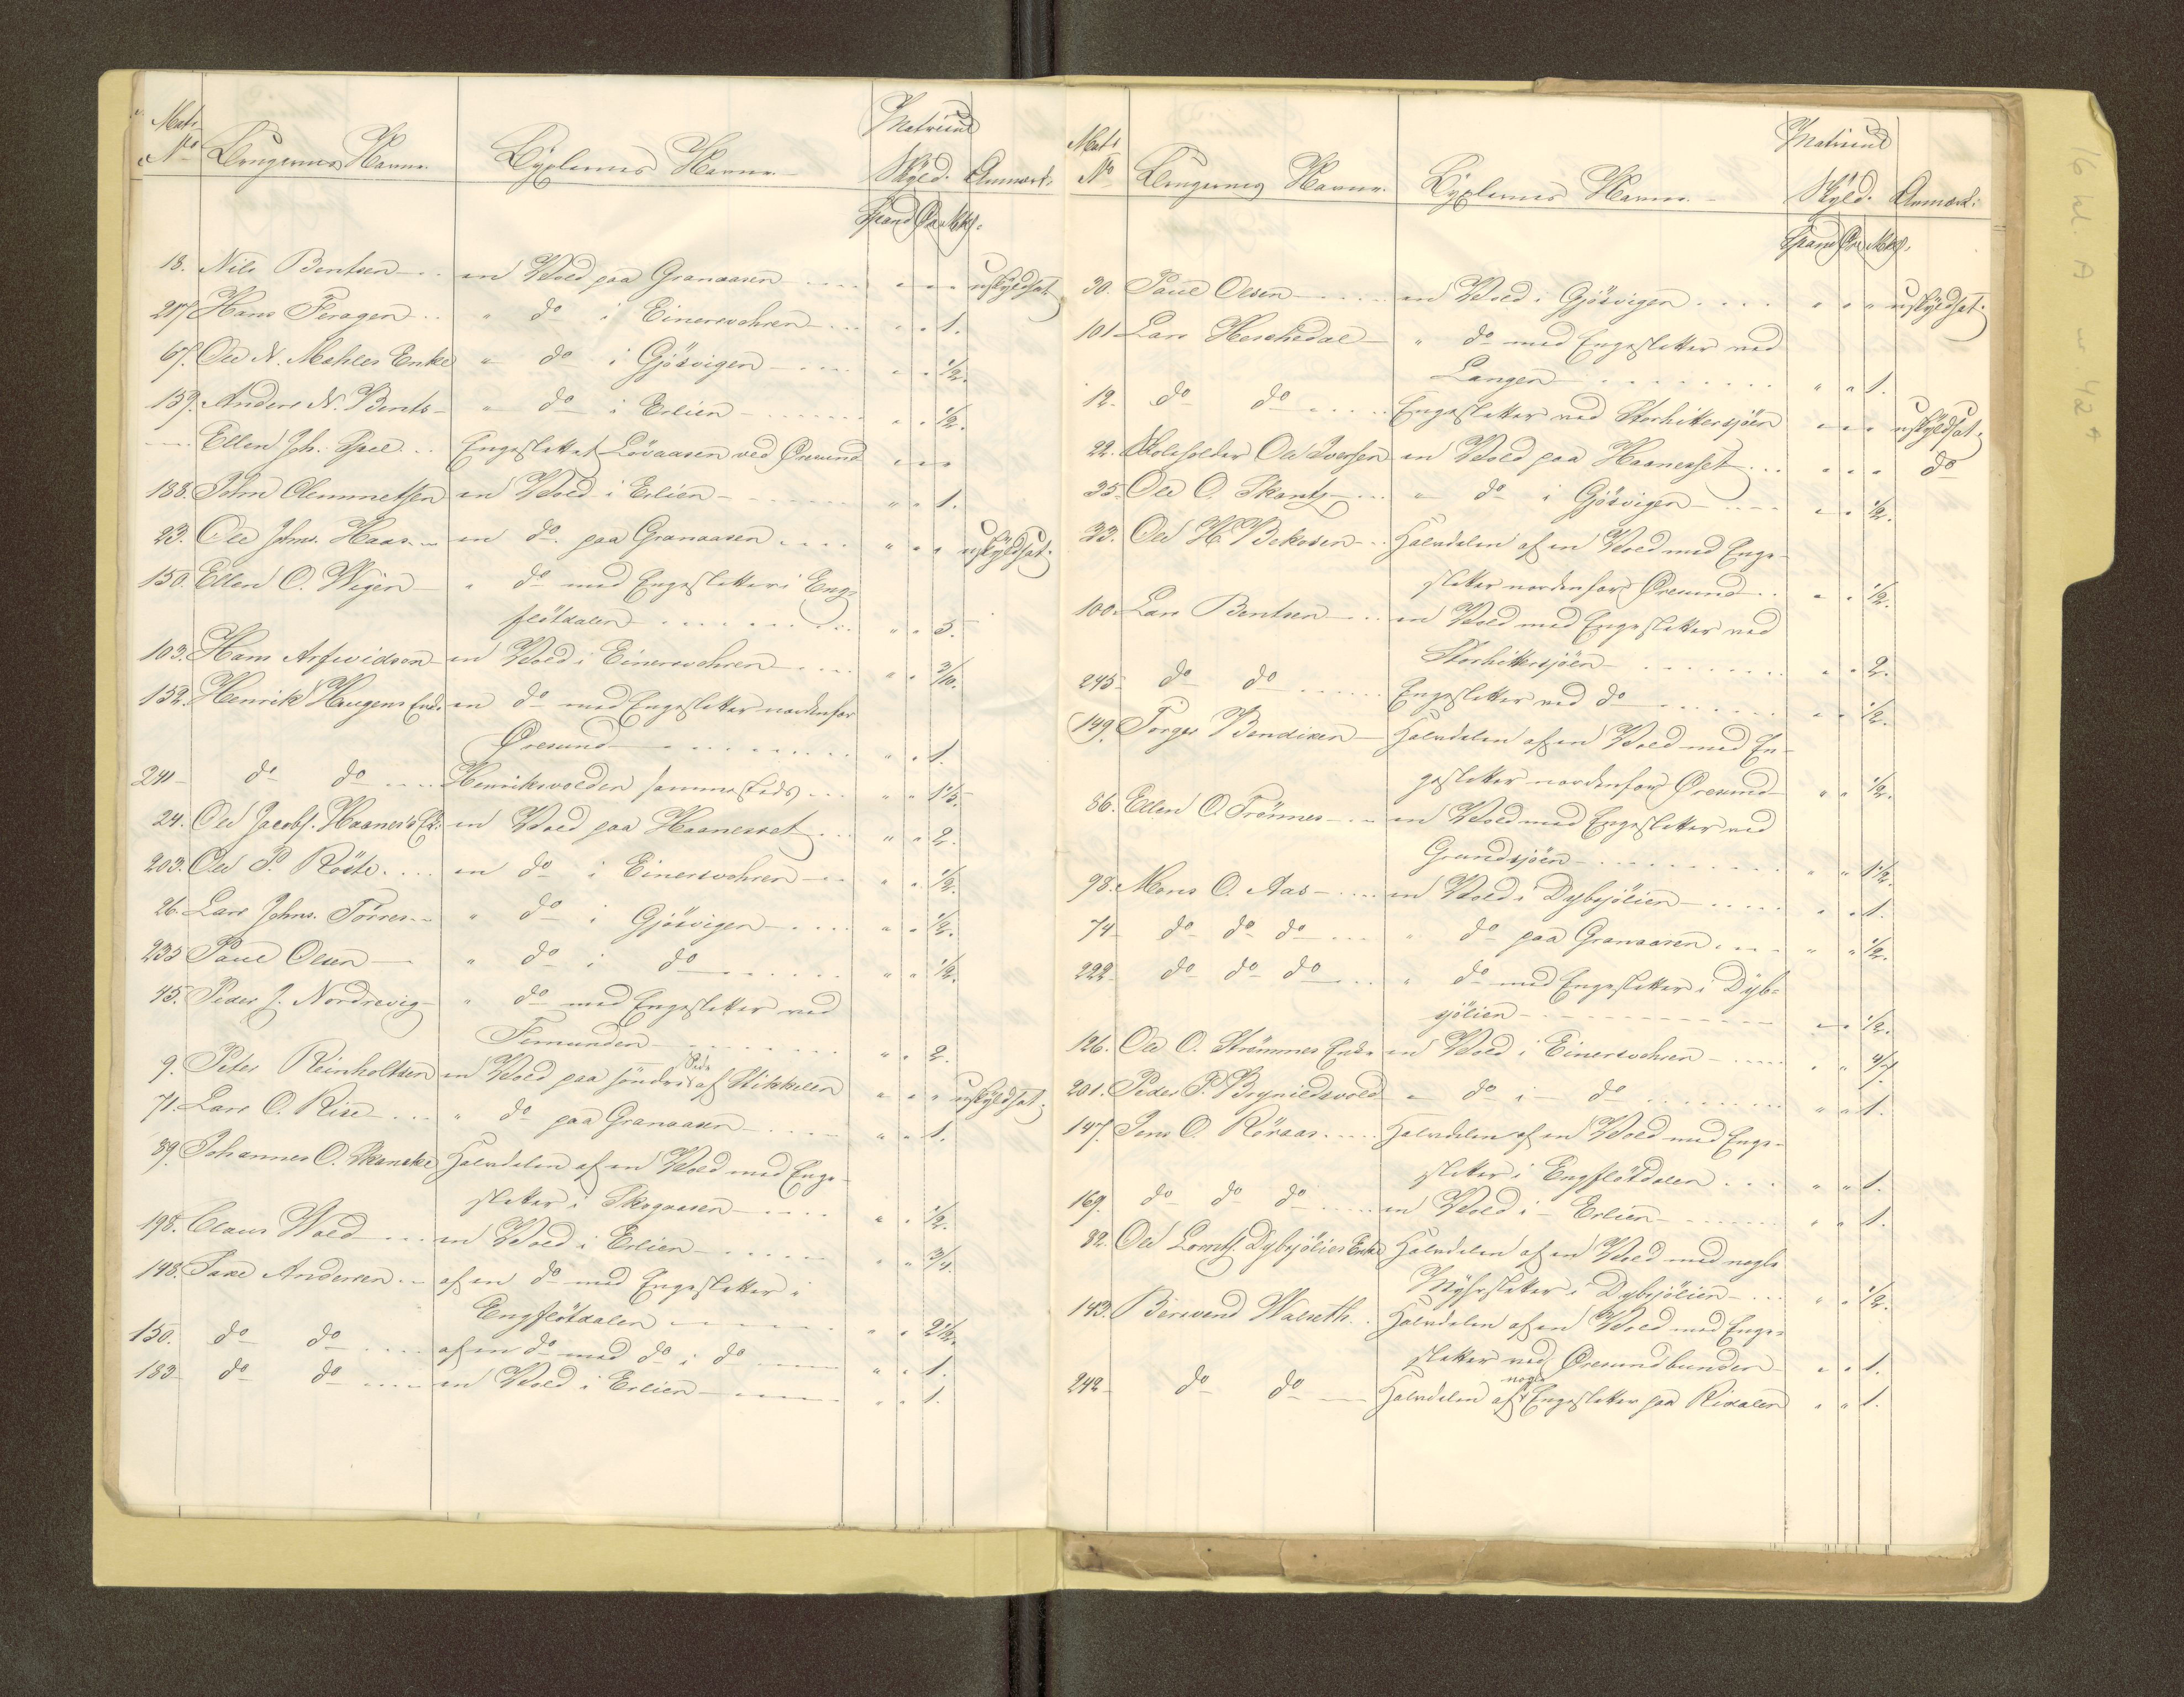 Matr No Brugernes Navne. Byxlernes Navne. Matricul Skyld. Anmærk:
Spand Øre Mkl.
18. Nils Bentsen - - en Vold paa Granaasen - - - - " " " uskyldsat.
217 Hans Feragen - - " do i Einersvohren - - - " " 1.
67. Ole N. Mahlers Enke " do i Gjösvigen - - - - " " 1/2.
159. Anders N. Bents- " do i Erlien - - - - " " 1/2.
- - - Ellen Joh. Spel - - Engeslettet Lövaasen ved Öresund " " "
188. John Clemmetsen en Vold i Erlien - - - - " " 1.
23. Ole Johns. Haas - - en do paa Granaasen - - - - " " " uskyldsat.
150. Ellen O. Wigen - " do med Engesletter i Eng-
flötdalen - - - - " " 3.
103. Hans Arfwidson en Vold i Einersvohren - - - " " 3/10.
152. Henrik Haugens Enke en do med Engesletter nordenfor
Öresund - - - - " " 1.
241 - do do - - - Henriksvolden sammesteds - - - " " 1 1/5.
24. Ole Jacobs. Haaners E: en Vold paa Haanesset - - " " 2.
203. Ole P. Röste - - - en do i Einersvohren - - " " 1/2.
26. Lars Johns. Törres - - " do i Gjösvigen - - - - " " 1/2.
235 Paul Olsen - " do i do - - - - " " 1/2.
45. Peder J. Nordrevig - " do med Engesletter ved
Femunden - - - - " " 2.
9. Peter Reinholtsen en Vold paa söndre Side af Stikkelen " " " uskyldsat.
71. Lars O. Rise - - - " do paa Granaasen - - - - " " 1.
39. Johannes O. Skancke Halvdelen af en Vold med Enge-
sletter i Skogaasen - - - - " " 1/2.
198. Claus Wold - - - en Vold i Erlien - - - - " " 3/4.
148. Taxe Andersen - - af en do med Engesletter i
Engflötdalen - - - - " " 2 1/2.
150. do do - - - - af en do med do i do - - - " " 1.
183 - do do - - - - en Vold i Erlien - - - - " " 1.
Matr No Brugernes Navne. Byxlernes Navne. Matricul Skyld. Anmærk:
Spand Øre Mkl.
30. Paul Olsen - - - - en Vold i Gjösvigen - - - - " " " uskyldsat.
101 Lars Heschedal - " do med Engesletter ved
Langen - - - - " " 1.
12. do do - - - - Engesletter ved Storhittersjöen " " " uskyldsat.
22. Skoleholder Ole Iversen en Vold paa Haanesset - - - " " " do
35. Ole O. Skantz - - - " do i Gjösvigen - - - - " " 1/2.
33. Ole H. Bekosen - - Halvdelen af en Vold med Enge-
sletter nordenfor Öresund - - " " 1/2.
100. Lars Bentsen - - en Vold med Engesletter ved
Storhittersjöen - - - - " " 2.
245 - do do - - - - Engesletter ved do - - - - " " 1/2.
149. Torger Bendixen - Halvdelen af en Vold med En-
gesletter nordenfor Öresund " " 1/2.
86. Ellen O. Trönnes - - en Vold med Engesletter ved
Grundsjöen - - - - " " 1 1/2.
98. Mons O. Aas - - - en Vold i Dybsjölien - - - - " " 1.
74 - do do do - - - " do paa Granaasen - - - " " 1/2.
222 - do do do - - - " do med Engesletter i Dyb-
sjölien - - - - " " 1/2.
126. Ole O. Strömmes Enke en Vold i Einersvohren - - - " " 4/7.
201. Peder P. Brynildsvold " do i do - - - - " " 1.
147. Jens O. Röraas - - - Halvdelen af en Vold med Enge-
sletter i Engflötdalen - - - " " 1.
169. do do do - - - en Vold i Erlien - - - - " " 1.
32. Ole Lornts. Dybsjöliers Enke Halvdelen af en Vold med nogle
Myhrsletter i Dybsjölien - - - " " 1/2.
143. Berwend Walseth - - Halvdelen af en Vold med Enge-
sletter ved Öresundbunden - " " 1.
242 - do do - - - Halvdelen af nogle Engesletter paa Rixalen " " 1.
16 kl. A nr. 42 A